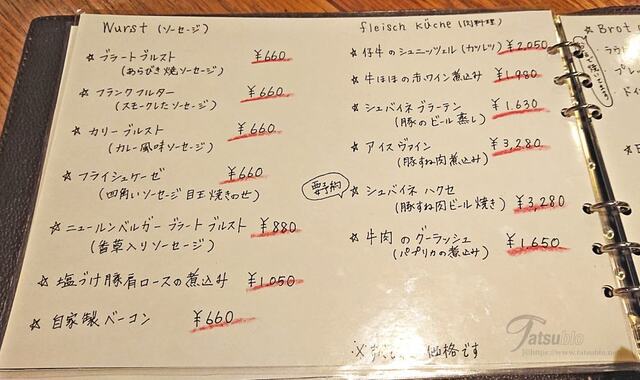 Wurst (ソーセージ)
☆ ブラートブルスト ¥660
(あらびき焼ソーセージ)
☆ フランクフルター ¥660
(スモークしたソーセージ)
☆ カリーブルスト ¥660
(カレー風味ソーセージ)
☆ フライシュケーゼ ¥660
(四角いソーセージ目玉焼きのせ)
☆ ニュールンベルガー ブラートブルスト ¥880
(香草入りソーセージ)
☆ 塩づけ豚肩ロースの煮込み ¥1,050
☆ 自家製ベーコン ¥660
fleisch küche (肉料理)
☆ 仔牛のシュニッツェル (カツレツ) ¥2,050
☆ 牛ほほの赤ワイン煮込み ¥1,980
☆ シュバイネブラーテン ¥1,630
(豚のビール蒸し)
☆ アイスヴァイン ¥3,280
(豚すね肉煮込み)
要予約
☆ シュバイネ ハクセ
(豚すね肉ビール焼き) ¥3,280
☆ 牛肉のグーラッシュ ¥1,650
(パプリカの煮込み)
価格です
Brot
Tatsublo
https://www.tatsublo.n